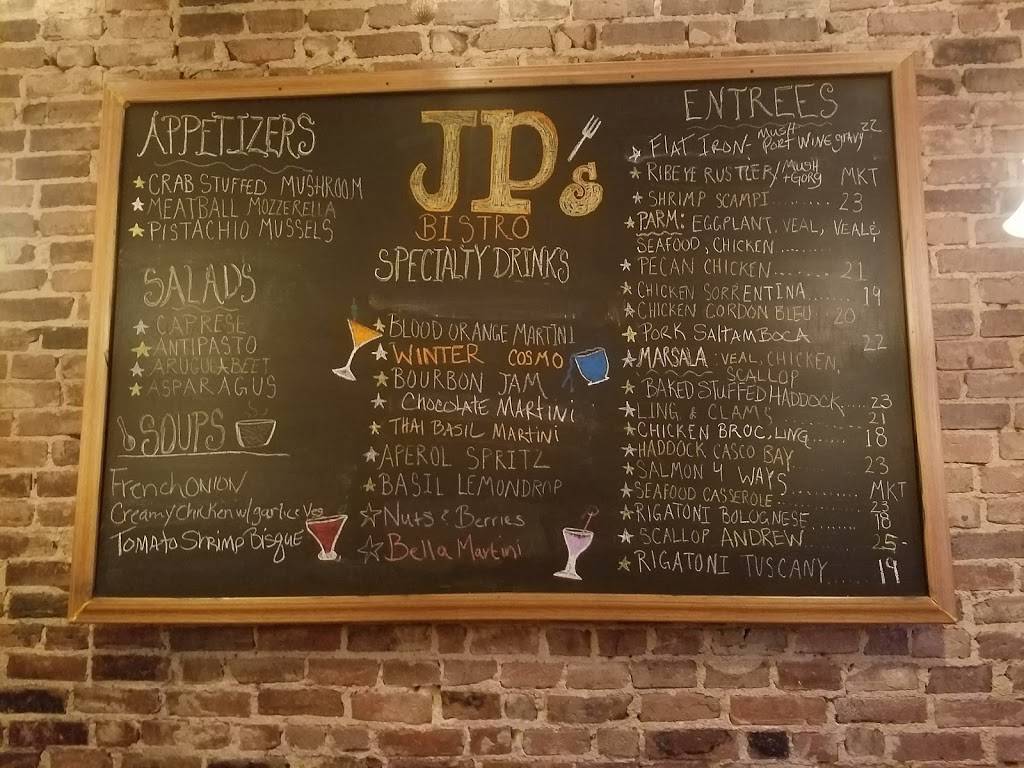 APPETIZERS
CRAB STUFFED MUSHROOM
MEATBALL MOZZERELLA
PISTACHIO MUSSELS
SALADS
CAPRESE
ANTIPASTO
ARUGULA BEET
ASPARAGUS
SOUPS
French ONION
Creamy Chicken w/ garlic Veg
Tomato Shrimp Bisque
JP's
BISTRO
SPECIALTY DRINKS
BLOOD ORANGE MARTINI
WINTER COSMO
BOURBON JAM
CHOCOLATE MARTINI
THAI BASIL MARTINI
APEROL SPRITZ
BASIL LEMONDROP
Nuts & Berries
Bella Martini
ENTREES
FLAT IRON- MUSH PORT WINE GRAVY 22
RIBEYE RUSTLER/ MUSH + GORG MKT
SHRIMP SCAMPI ........ 23
PARM: EGGPLANT, VEAL,
SEAFOOD, CHICKEN ........
PECAN CHICKEN ........ 21
CHICKEN SORRENTINA ...... 19
CHICKEN CORDON BLEU ... 20
PORK SALTAMBOCA 22
MARSALA: VEAL, CHICKEN,
SCALLOP
BAKED STUFFED HADDOCK .... 23
LING & CLAMS ........ 21
CHICKEN BROC, LING ..... 18
HADDOCK CASCO BAY
SALMON 4 WAYS ....... 23
SEAFOOD CASSEROLE ....... MKT
RIGATONI BOLOGNESE 23
SCALLOP ANDREW 18
25-
RIGATONI TUSCANY .... 19